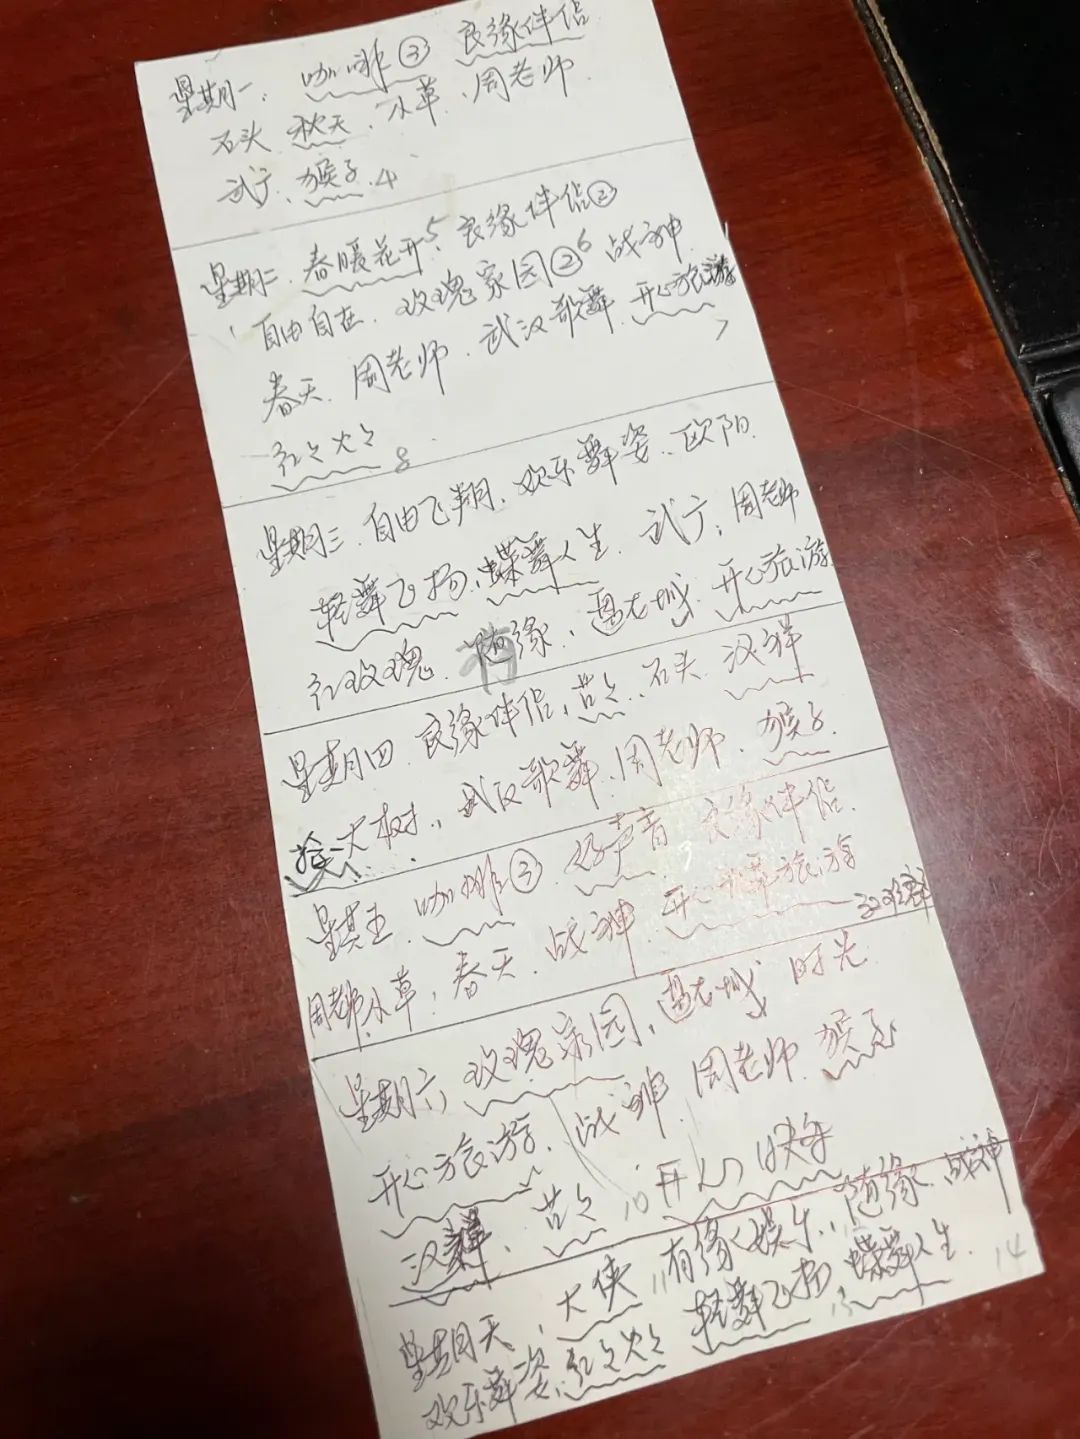 星期一、咖啡③ 良缘伴侣
石头 秋天、小草、周老师
武广、猴子 4
星期二、春暖花开5、良缘伴侣②
自由自在、玫瑰家园②6 战神
春天、周老师、武汉歌舞、开心旅游
7
红々火々 8
星期三、自由飞翔、欢乐舞姿、欧阳
轻舞飞扬、蝶舞人生、武广、周老师
红玫瑰、随缘、盘龙城、开心旅游
星期四、良缘伴侣、芸々、石头、汉祥
大树、武汉歌舞、周老师、猴子
星其五、咖啡③、好声音 良缘伴侣
周老师、小草、春天、战神、开心旅游
星期六 玫瑰家园、盘龙城 时光
开心旅游、战神、周老师、猴子
汉祥、芸々 10 开心
星期天、大侠 11 有缘人娱乐、随缘、战神
欢乐舞姿、红々火々 轻舞飞扬、蝶舞人生 14